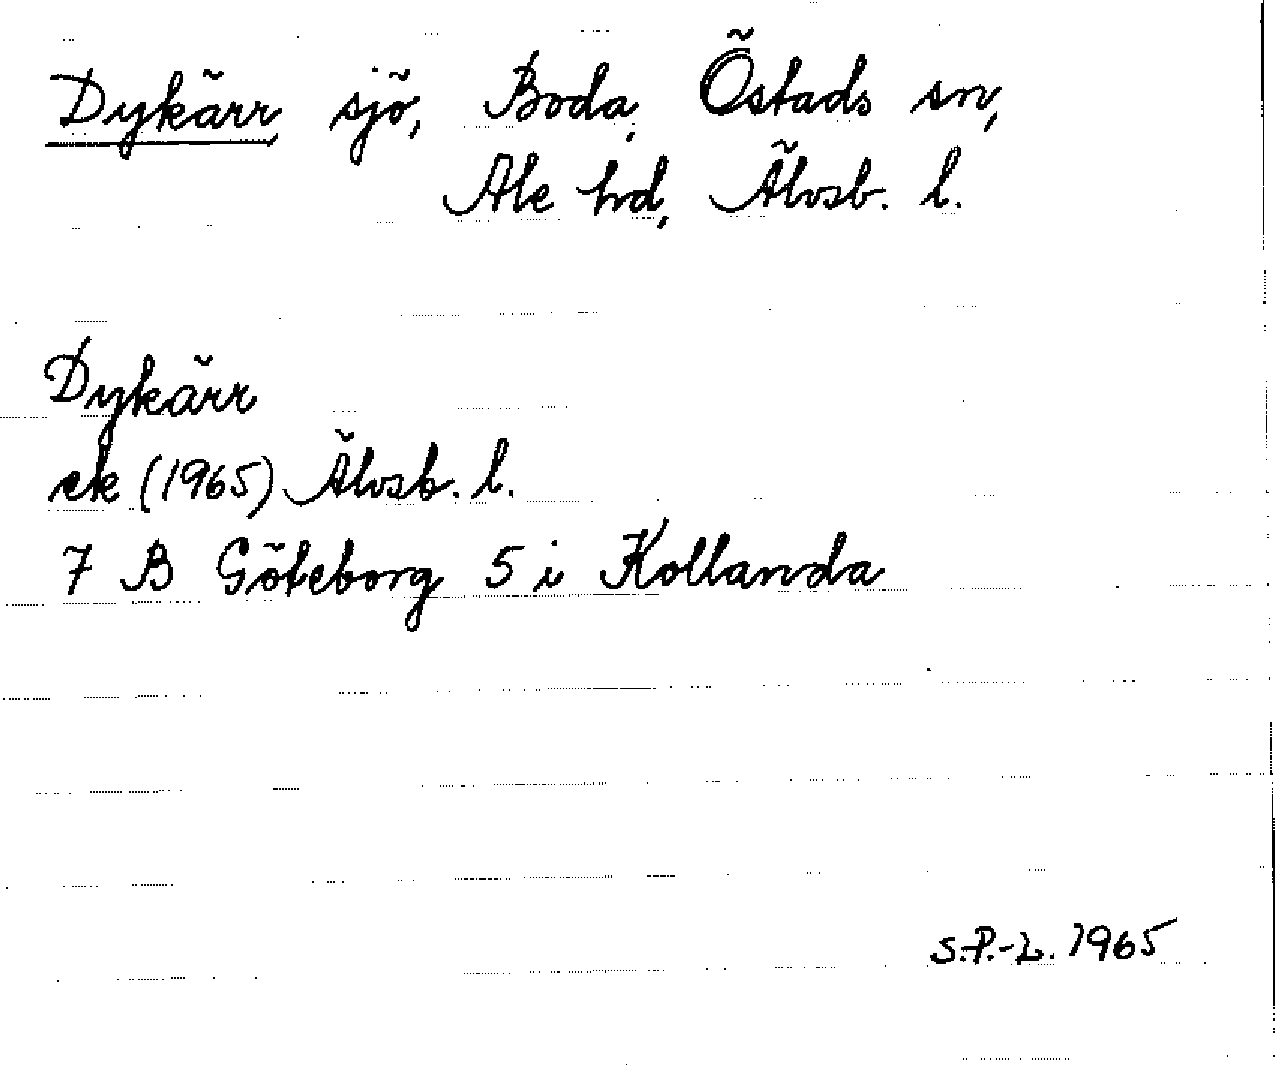 Dykärr, sjö, Boda, Östads sn,
Ale hd, Älvsb. l.
Dykärr
ek (1965) Älvsb. l.
7 B Göteborg 5 i Kollanda
S.P.-L. 1965